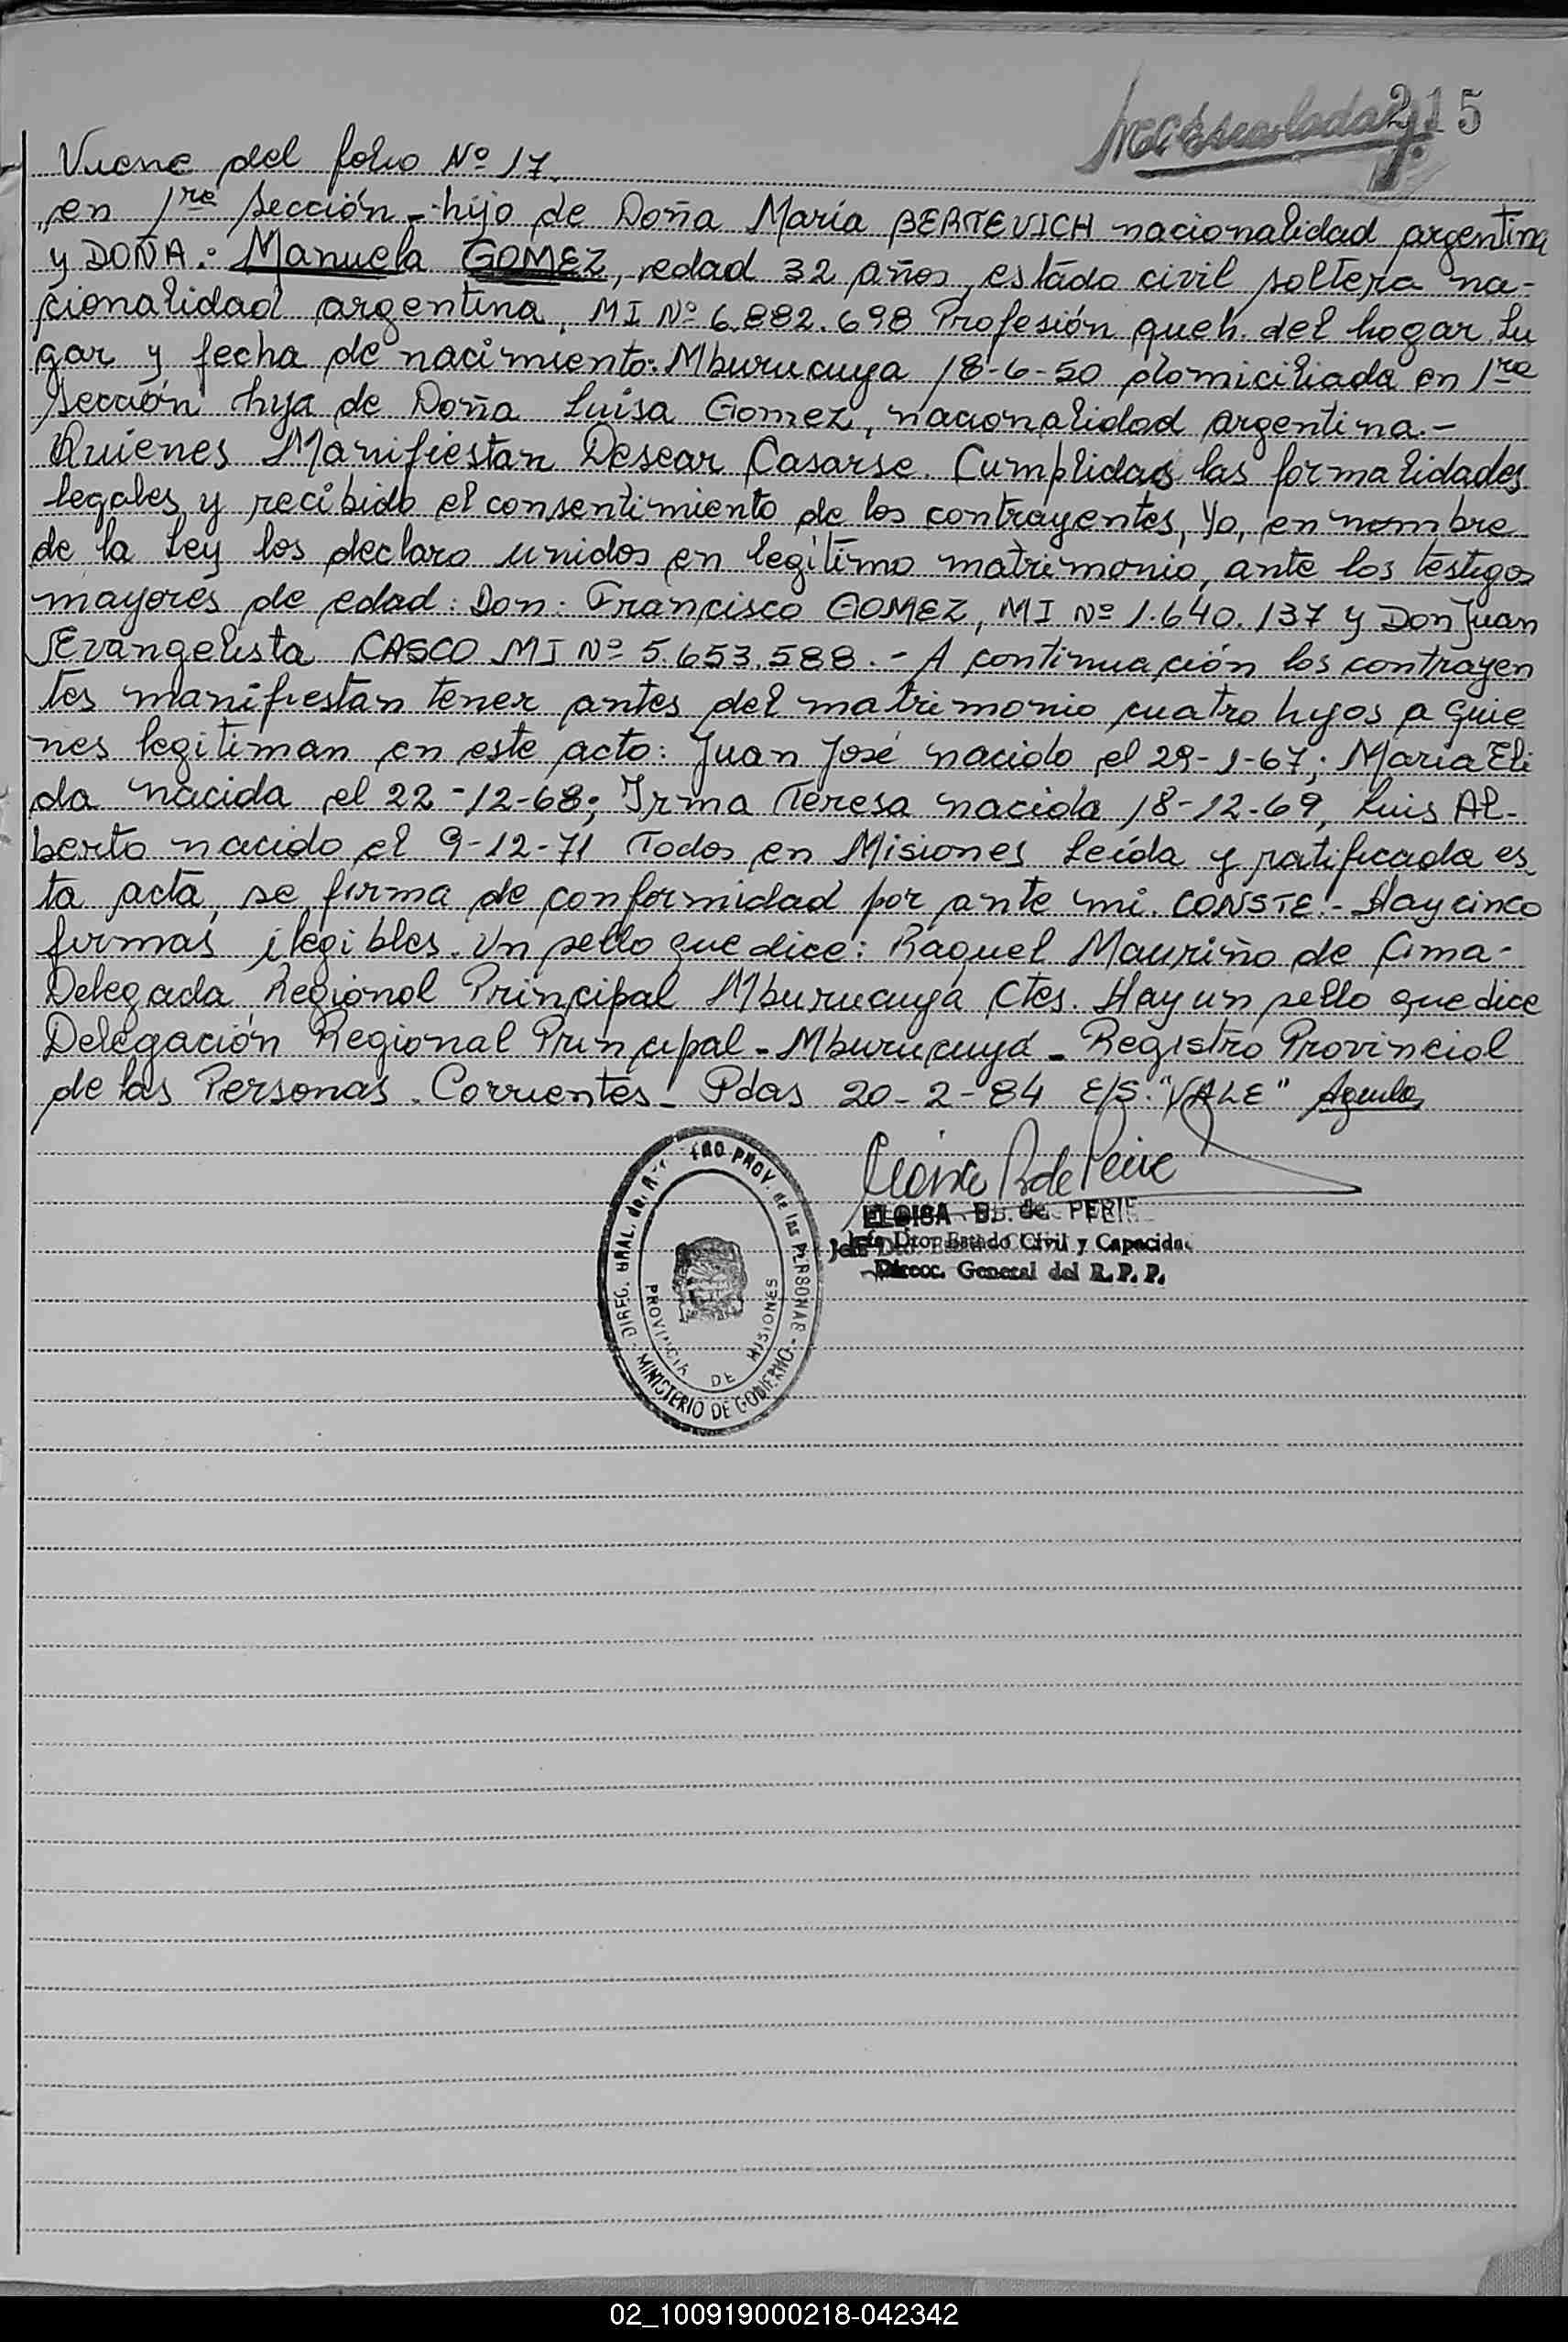 215
Viene del folio Nº 17.
en 1ra sección - hijo de Doña María BERTEVICH nacionalidad argentina
y DOÑA: Manuela GOMEZ, edad 32 años, estado civil soltera na-
cionalidad argentina, MI Nº 6.882.698 Profesión queh. del hogar. Lu
gar y fecha de nacimiento: Mburucuya 18-6-50 domiciliada en 1ra
sección hija de Doña Luisa Gomez, nacionalidad argentina.-
Quienes Manifiestan Desear Casarse. Cumplidas las formalidades
legales y recibido el consentimiento de los contrayentes, Yo, en nombre
de la Ley los declaro unidos en legítimo matrimonio, ante los testigos
mayores de edad: Don: Francisco GOMEZ, MI Nº 1.640.137 y Don Juan
Evangelista CASCO MI Nº 5.653.588.- A continuación los contrayen
tes manifiestan tener antes del matrimonio cuatro hijos a quie
nes legitiman en este acto: Juan José nacido el 29-1-67; María Eli
da nacida el 22-12-68; Irma Teresa nacida 18-12-69, Luis Al-
berto nacido el 9-12-71 Todos en Misiones Leída y ratificada es
ta acta, se firma de conformidad por ante mi. CONSTE.- Hay cinco
firmas ilegibles. Un sello que dice: Raquel Mauriño de Cima-
Delegada Regional Principal Mburucuya Ctes. Hay un sello que dice
Delegación Regional Principal - Mburucuyá - Registro Provincial
de las Personas. Corrientes - Pdas 20-2-84 E/S: "VALE"
DIREC. GRAL. del PROV. de las PERSONAS - MINISTERIO DE GOBIERNO -
PROVINCIA DE MISIONES
ELOISA B. de PERIE
Jefe Dto. Estado Civil y Capacidad
Direcc. General del R. P. P.
02_100919000218-042342